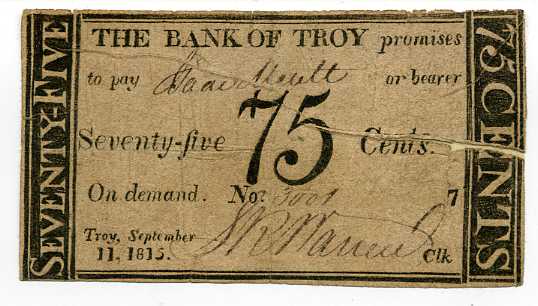 SEVENTY-FIVE
THE BANK OF TROY promises
to pay Isaac Merritt or bearer
Seventy-five 75 Cents.
On demand. No: 7
Troy, September
11, 1815.
Clk
75 CENTS